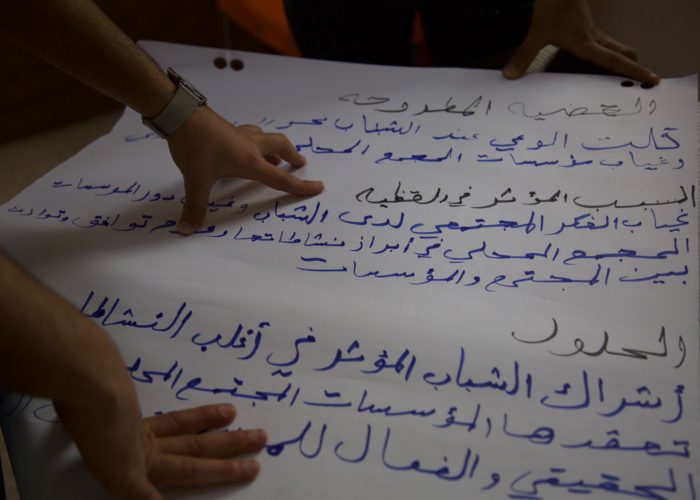 القضية المطروحة
قلت الوعي عند الشباب نحو
وغياب مؤسسات المجتمع المحلي
السبب المؤثر في القظية
غياب الفكر المجتمعي لدى الشباب وغياب دور المؤسسات
المجتمع المحلي في أبراز نشاطاتها توافق وتوازن
بين المجتمع والمؤسسات
الحلول
أشراك الشباب المؤثر في أغلب النشاطا
تعقدها المؤسسات المجتمع المحل
الحقيقي والفعال